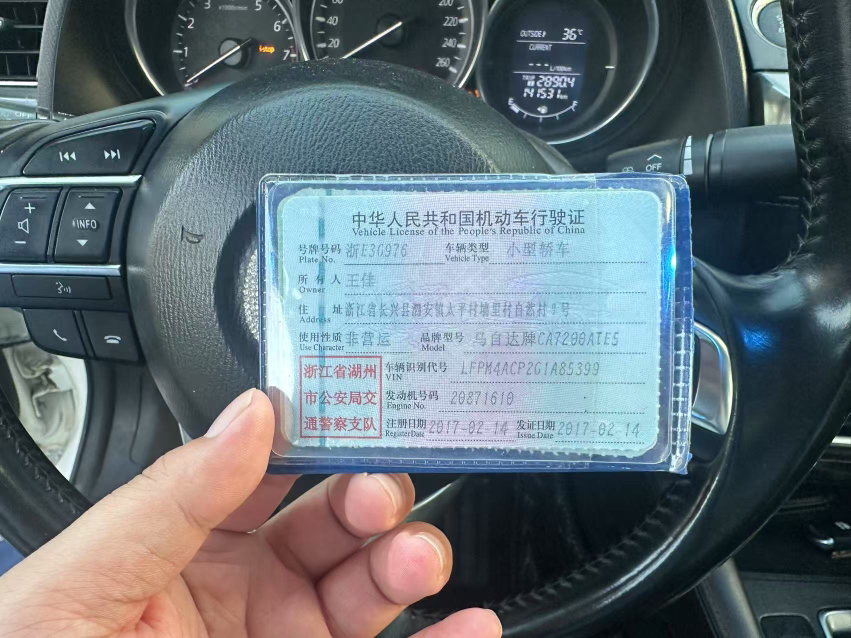 1 2 3 4 5 6 7
x1000r/min
i-stop
20 40 60 80
200 220 240 260
OUTSIDE 36℃
CURRENT
--- L/100km
TRIP B 2890.4
141531 km
E F
OFF
+ INFO
中华人民共和国机动车行驶证
Vehicle License of the People's Republic of China
号牌号码 浙E3G976 车辆类型 小型轿车
Plate No. Vehicle Type
所有人 王佳
Owner
住址 浙江省长兴县泗安镇太平村塘里村自然村8号
Address
使用性质 非营运 品牌型号 马自达牌CA7200ATE5
Use Character Model
浙江省湖州 车辆识别代号 LFPM4ACP2G1A85399
VIN
市公安局交 发动机号码 20871610
Engine No.
通警察支队 注册日期 2017-02-14 发证日期 2017-02-14
Register Date Issue Date